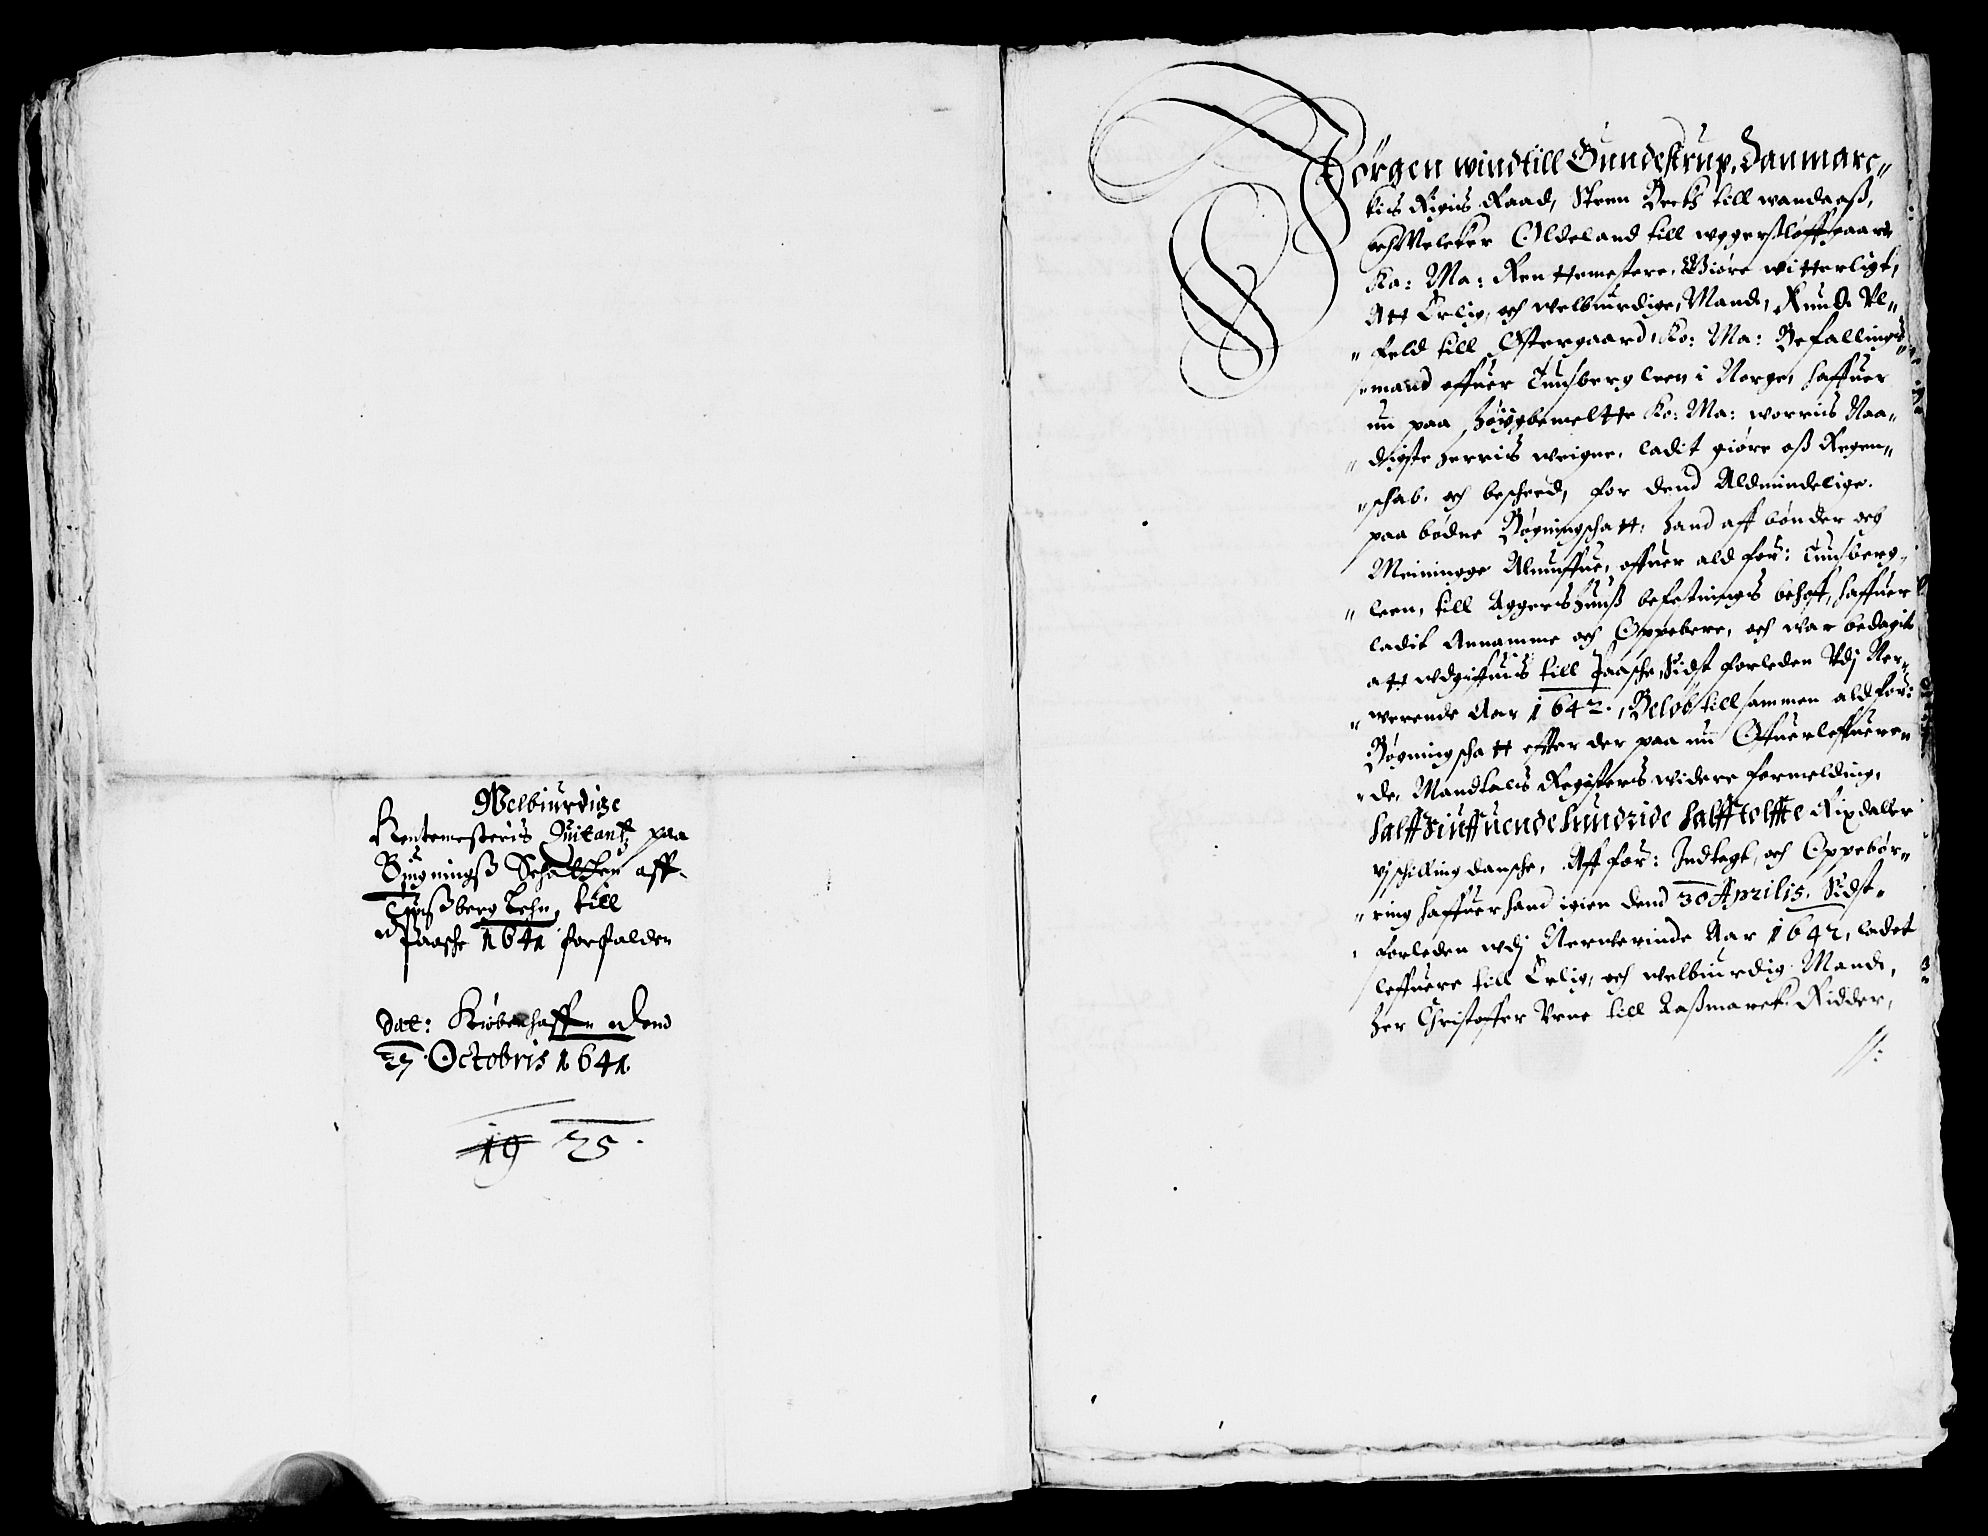 Welbiurdige
Rentemesteris Quitantz paa
Bygningß Schatten aff
Tunßberg Lehn, till
Paasche 1641 forfalden
Dat: Kiøbenhaffn dend
27 Octobris 1641
19 25.
Jørgen wind till Gundestrup, Danmarc„
kis Rigis Raad, Steen Beck till wandaaß,
och Melcker Oldeland till wggerßløffgaard
Ko: Ma: Renttemestere, Giøre witterligt,
Att Erlig, och welbiurdige Mand, Knud Vl„
„feld till Østergaard, Ko: Ma: Befallings„
„mand offuer Tunsberg leen i Norge, haffuer
nu paa høygbemeltte Ko: Ma: worris Naa„
„digste herris weigne, ladit giøre oß Regen„
„schab, och bescheed, for dend Aldmindelige
paa bødne Bøgningschatt, hand aff bønder och
Meninnge Almuffue, offuer ald for: Tunsberg„
„leen, till Aggershuuß befestnings behoff, haffuer
ladit Annamme och Oppebere, och war bedagit
att wdgiffuis till Paasche, Sidst forleden Vdj Ner„
„werende Aar 1642, Beløb till sammen ald for:
Bøgningschatt effter der paa nu Offuerleffueren„
„de, Mandtals Registers widere formelding,
halff Siuffuende hundride halff tolffte Rixdaller
vj schilling dansche, Aff for: Indtegt, och Oppebør„
„ring haffuer hand igien dend 30 Aprilis, Sidst„
forleden wdj Nerwerinde Aar 1642, ladet
leffuere till Erlig, och welbiurdig Mand,
Her Christoffer Vrne till Aaßmarck Ridder,